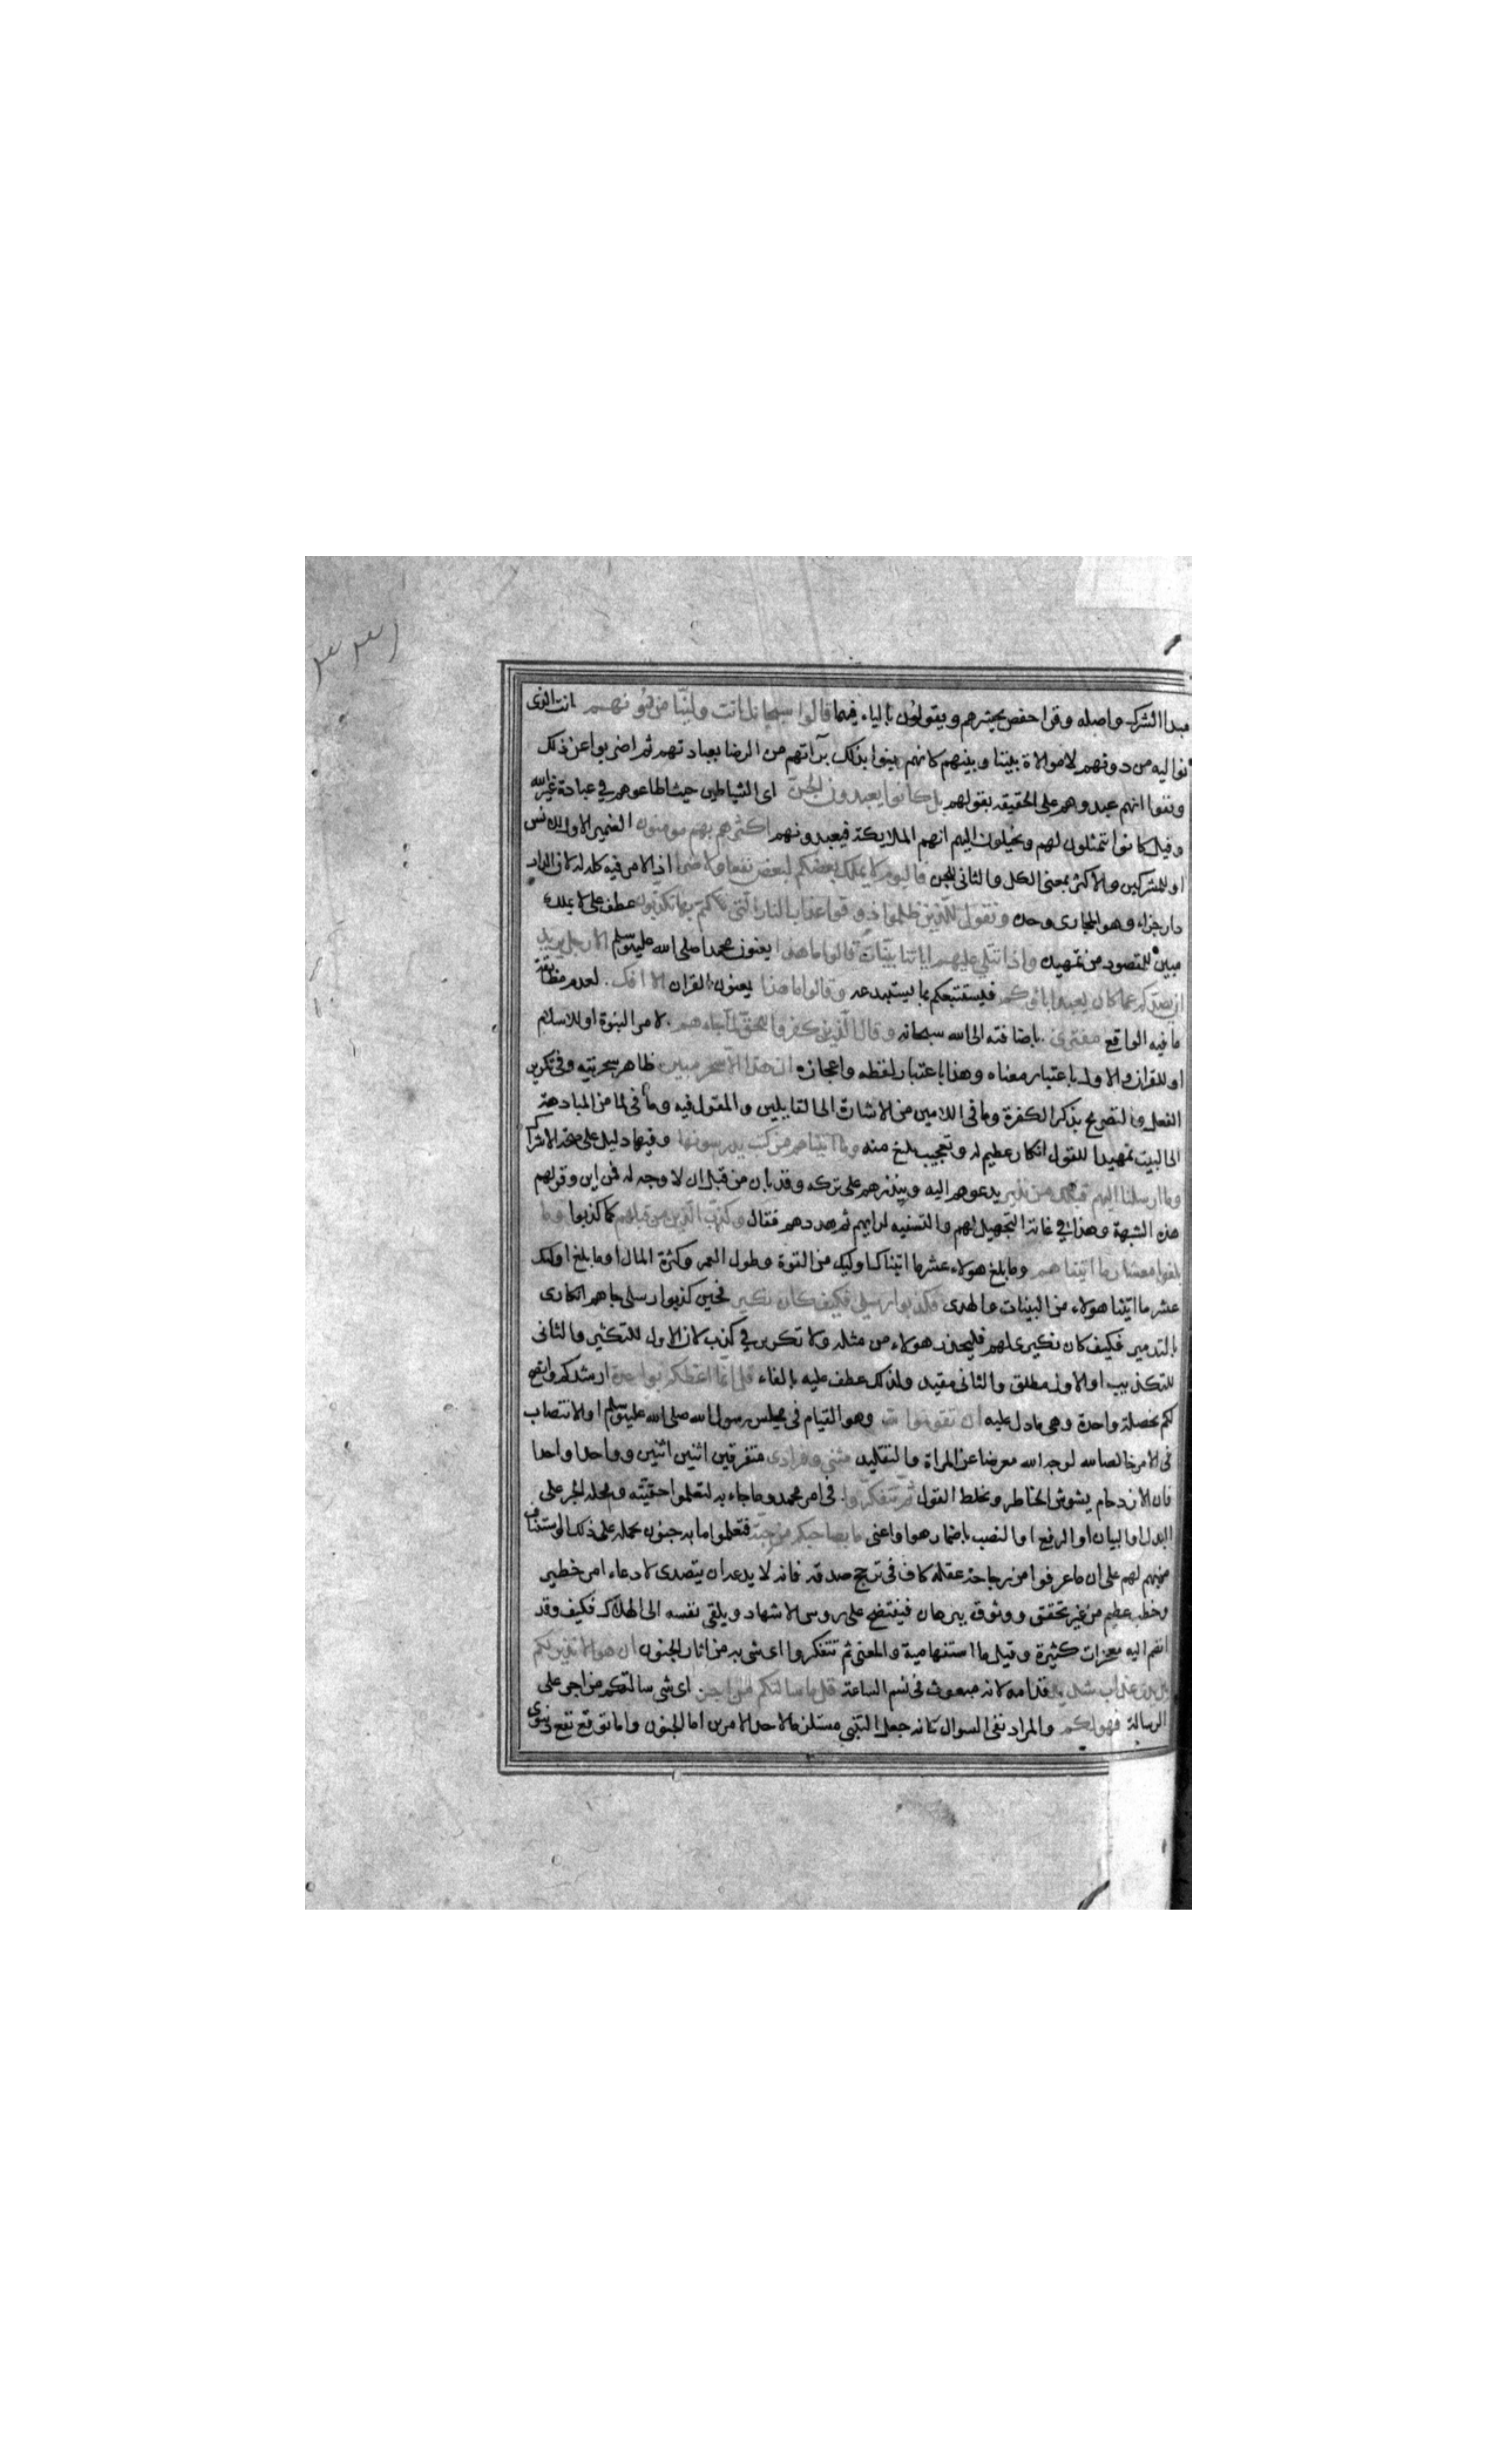 ٣٣١
مبدا الشرك واصله وقرا حفص يحشرهم ويقولون بالياء فيهما قالوا سبحانك انت ولينا من دونهم انت الذى
نواليه من دونهم لاموالاة بيننا وبينهم كانهم بينوا بذلك برآتهم من الرضا بعبادتهم ثم اضربوا عن ذلك
ونفوا انهم عبدوهم على الحقيقه بقولهم بل كانوا يعبدون الجن اى الشياطين حيث اطاعوهم فى عبادة غير الله
وقيل كانوا تمثلون لهم ويخيلون اليهم انهم الملايكة فيعبدونهم اكثرهم بهم مومنون الضمير الاول للانس
او للمشركين والاكثر بمعنى الكل والثانى للجن فاليوم لا يملك بعضكم لبعض نفعا ولا ضرا اذ الامر فيه كله له لان الدار
دار جزاء وهو المجازى وحده ونقول للذين ظلموا ذوقوا عذاب النار التى كنتم بها تكذبون عطف على لا يملك
مبين للمقصود من تمهيده واذا تتلى عليهم اياتنا بينات قالوا ما هذا يعنون محمدا صلى الله عليه وسلم الا رجل يريد
ان يصدكم عما كان يعبد اباؤكم فيستتبعكم بما يستبدعه وقالوا ما هذا يعنون القران الا افك لعدم مطابقة
ما فيه الواقع مفترى باضافته الى الله سبحانه وقال الذين كفروا للحق لما جاءهم لامر النبوة او للاسلام
او للقران والاول باعتبار معناه وهذا باعتبار لفظه واعجازه ان هذا الا سحر مبين ظاهر سحريته وفى تكرير
الفعل والتصريح بذكر الكفرة وما فى اللامين من الاشارة الى القايلين والمقول فيه وما فى لما من المبادهة
الى البت تمهيدا للقول انكار عظيم له وتعجيب بليغ منه وما اتيناهم من كتب يدرسونها وفيها دليل على صحة الاشراك
وما ارسلنا اليهم قبلك من نذير يدعوهم اليه وينذرهم على تركه وقد بان من قبل ان لا وجه له فمن اين وقع لهم
هذه الشبهة وهذا فى غاية التجهيل لهم والتسفيه لرايهم ثم هددهم فقال وكذب الذين من قبلهم كما كذبوا وما
بلغوا معشار ما اتيناهم وما بلغ هولاء عشر ما اتينا اوليك من القوة وطول العمر وكثرة المال او ما بلغ اوليك
عشر ما اتينا هولاء من البينات والهدى فكذبوا رسلى فكيف كان نكير فحين كذبوا رسلى جاهم انكارى
بالتدمير فكيف كان نكيرى لهم فليحذر هولاء من مثله ولا تكرير فى كذب لان الاول للتكثير والثانى
للتكذيب او الاول مطلق والثانى مقيد ولذلك عطف عليه بالفاء قل انما اعظكم بواحدة ارشدكم وانصح
لكم بخصلة واحدة وهى ما دل عليه ان تقوموا لله وهو القيام فى مجلس رسول الله صلى الله عليه وسلم او الانتصاب
فى الامر خالصا لله لوجه الله معرضا عن المراة والتقليد مثنى وفرادى متفرقين اثنين اثنين وواحدا واحدا
فان الازدحام يشوش الخاطر ويخلط القول ثم تتفكروا فى امر محمد وما جاء به لتعلموا حقيته ومحله الجر على
البدل او البيان او الرفع او النصب باضمار هو او اعنى ما بصاحبكم من جنة فتعلموا ما به جنون يحمله على ذلك او استيناف
منبه لهم على ان ما عرفوا من رجاحة عقله كاف فى ترجح صدقه فانه لا يدعه ان يتصدى لادعاء امر خطير
وخطب عظيم من غير تحقق ووثوق ببرهان فيفتضح على روس الاشهاد ويلقى نفسه الى الهلاك فكيف وقد
انضم اليه معجزات كثيرة وقيل ما استفهامية والمعنى ثم تتفكروا اى شى به من اثار الجنون ان هو الا نذير لكم
بين يدى عذاب شديد قدامه لانه مبعوث فى نسم الساعة قل ما سالتكم من اجر اى شى سالتكم من اجر على
الرسالة فهو لكم والمراد نفى السوال كانه جعل التنبى مستلزما لاحد الامرين اما الجنون واما توقع نفع دنيوى